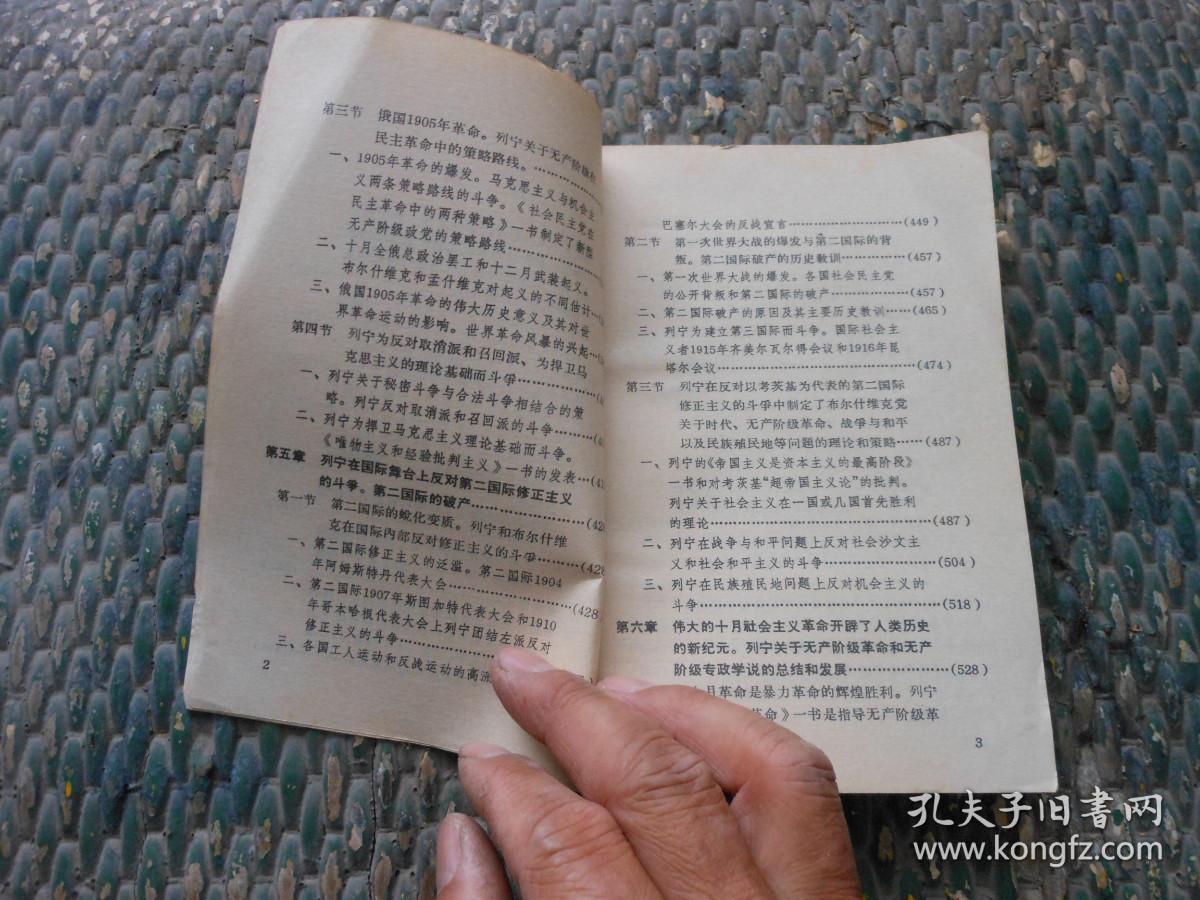 第三节 俄国1905年革命。列宁关于无产阶级在
民主革命中的策略路线。…………
一、1905年革命的爆发。马克思主义与机会主
义两条策略路线的斗争。《社会民主党在
民主革命中的两种策略》一书制定了新型
无产阶级政党的策略路线…………
二、十月全俄总政治罢工和十二月武装起义。
布尔什维克和孟什维克对起义的不同估计…
三、俄国1905年革命的伟大历史意义及其对世
界革命运动的影响。世界革命风暴的兴起…
第四节 列宁为反对取消派和召回派、为捍卫马
克思主义的理论基础而斗争…………
一、列宁关于秘密斗争与合法斗争相结合的策
略。列宁反对取消派和召回派的斗争………
二、列宁为捍卫马克思主义理论基础而斗争。
《唯物主义和经验批判主义》一书的发表…
第五章 列宁在国际舞台上反对第二国际修正主义
的斗争。第二国际的破产…………(428
第一节 第二国际的蜕化变质。列宁和布尔什维
克在国际内部反对修正主义的斗争…………(428
一、第二国际修正主义的泛滥。第二国际1904
年阿姆斯特丹代表大会…………(428)
二、第二国际1907年斯图加特代表大会和1910
年哥本哈根代表大会上列宁团结左派反对
修正主义的斗争…………
三、各国工人运动和反战运动的高涨
2
巴塞尔大会的反战宣言…………(449)
第二节 第一次世界大战的爆发与第二国际的背
叛。第二国际破产的历史教训…………(457)
一、第一次世界大战的爆发。各国社会民主党
的公开背叛和第二国际的破产…………(457)
二、第二国际破产的原因及其主要历史教训……(465)
三、列宁为建立第三国际而斗争。国际社会主
义者1915年齐美尔瓦尔得会议和1916年昆
塔尔会议…………(474)
第三节 列宁在反对以考茨基为代表的第二国际
修正主义的斗争中制定了布尔什维克党
关于时代、无产阶级革命、战争与和平
以及民族殖民地等问题的理论和策略……(487)
一、列宁的《帝国主义是资本主义的最高阶段》
一书和对考茨基“超帝国主义论”的批判。
列宁关于社会主义在一国或几国首先胜利
的理论…………(487)
二、列宁在战争与和平问题上反对社会沙文主
义和社会和平主义的斗争…………(504)
三、列宁在民族殖民地问题上反对机会主义的
斗争…………(518)
第六章 伟大的十月社会主义革命开辟了人类历史
的新纪元。列宁关于无产阶级革命和无产
阶级专政学说的总结和发展…………(528)
月革命是暴力革命的辉煌胜利。列宁
革命》一书是指导无产阶级革
3
孔夫子旧书网
www.kongfz.com